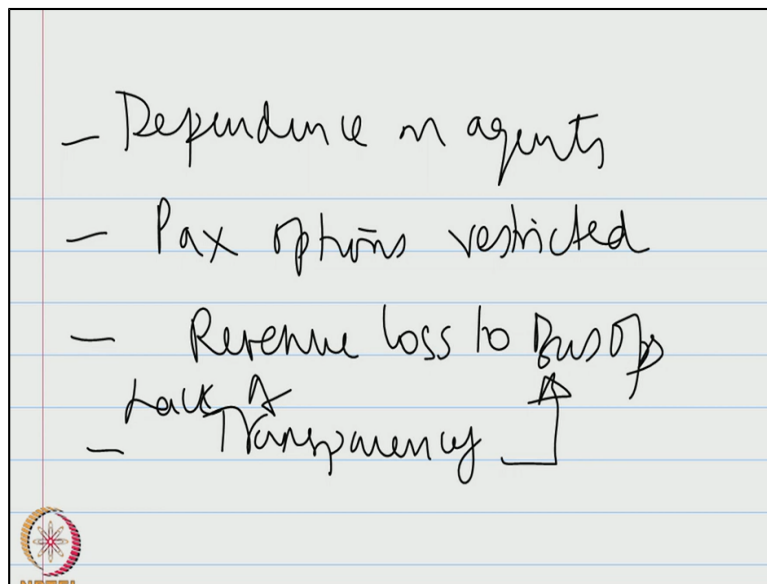 - Dependence on agents
- Pax options restricted
- Revenue loss to Bus Op
Lack of
- Transparency
NPTEL